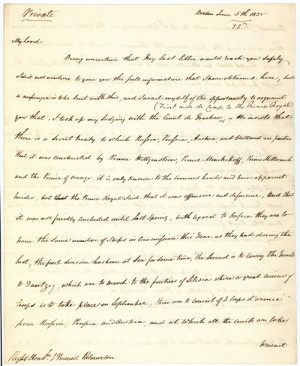 Private
Berlin June 5th 1835
My Lord
Being uncertain that my last letter would reach you safely
I did not venture to give you the full information that I have obtained here, but
a messenger is to be sent with this, and I avail myself of the opportunity to acquaint
(First aide de Camp to the Prince Royal)
you that, I took up my lodging with the Count de
He insists that
there is a secret treaty to which Russia, Prussia, Austria and Holland are parties
that it was conducted by Prince Wittgenstein, Prince Prince Metternich
and the Prince of Orange. it is only known to the crowned heads and heir apparent
but that the Prince Royal said that it was offensive and defensive, And that
it was not finally concluded until last Spring. with regard to Russia they are to
have the same number of Ships in Commission this Year as they had during the
last, the first division has been at Sea for some time, the second is to carry the Guards
to Dantzig, which are to march to the frontiers of Silesia where a great
Troops is to take place in September, this on to consist of 3 Corps d'armée
from Russia, Prussia and Austria, and at which all the are to be
present
Right Honble. Viscount Palmerston